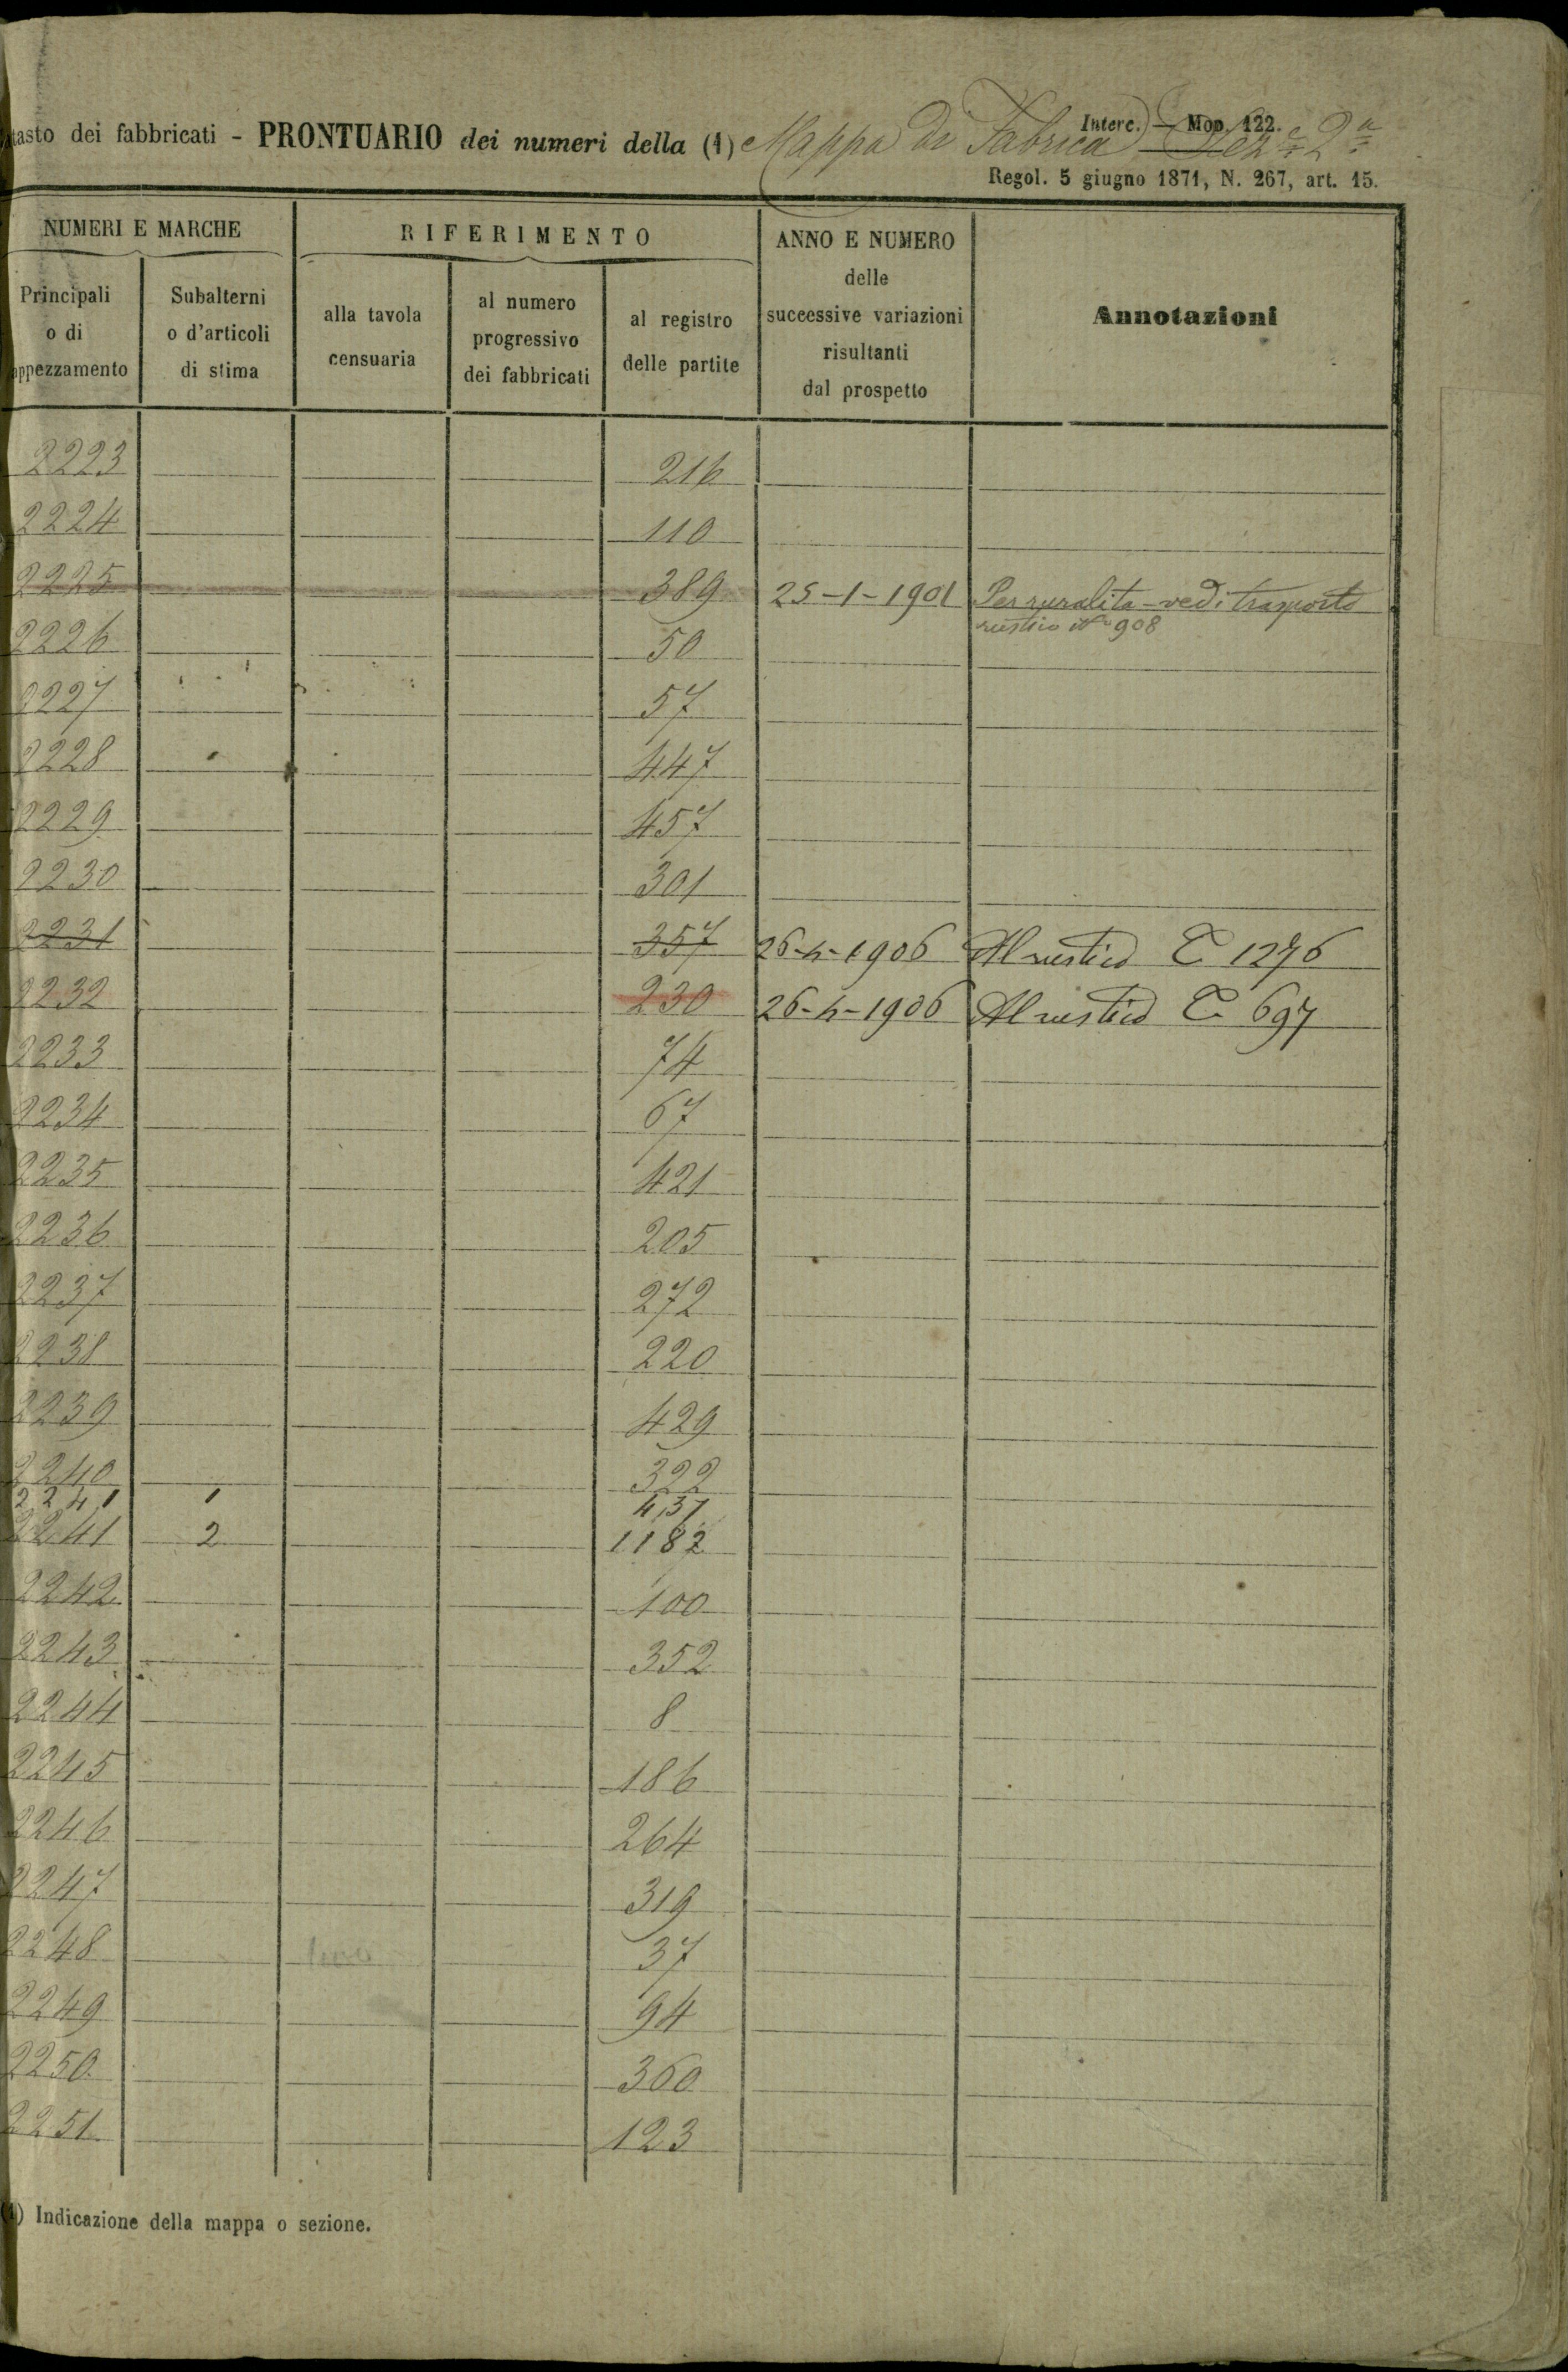 tasto dei fabbricati - PRONTUARIO dei numeri della (1) Mappa di Fabrica Sez.e 2a
Interc. — Mod. 122.
Regol. 5 giugno 1871, N. 267, art. 15.
NUMERI E MARCHE
RIFERIMENTO
ANNO E NUMERO
delle
successive variazioni
risultanti
dal prospetto
Annotazioni
Principali
o di
appezzamento
Subalterni
o d'articoli
di stima
alla tavola
censuaria
al numero
progressivo
dei fabbricati
al registro
delle partite
2223 216
2224 110
2225 389 25-1-1901 Per ruralita - vedi trasporto
rustico No 908
2226 50
2227 57
2228 447
2229 457
2230 301
2231 357 26-4-1906 Al rustico C 1276
2232 230 26-4-1906 Al rustico C 697
2233 74
2234 67
2235 421
2236 205
2237 272
2238 220
2239 429
2240 322
2241 1 437
2241 2 1182
2242 100
2243 352
2244 8
2245 186
2246 264
2247 319
2248 37
2249 94
2250 360
2251 123
(1) Indicazione della mappa o sezione.